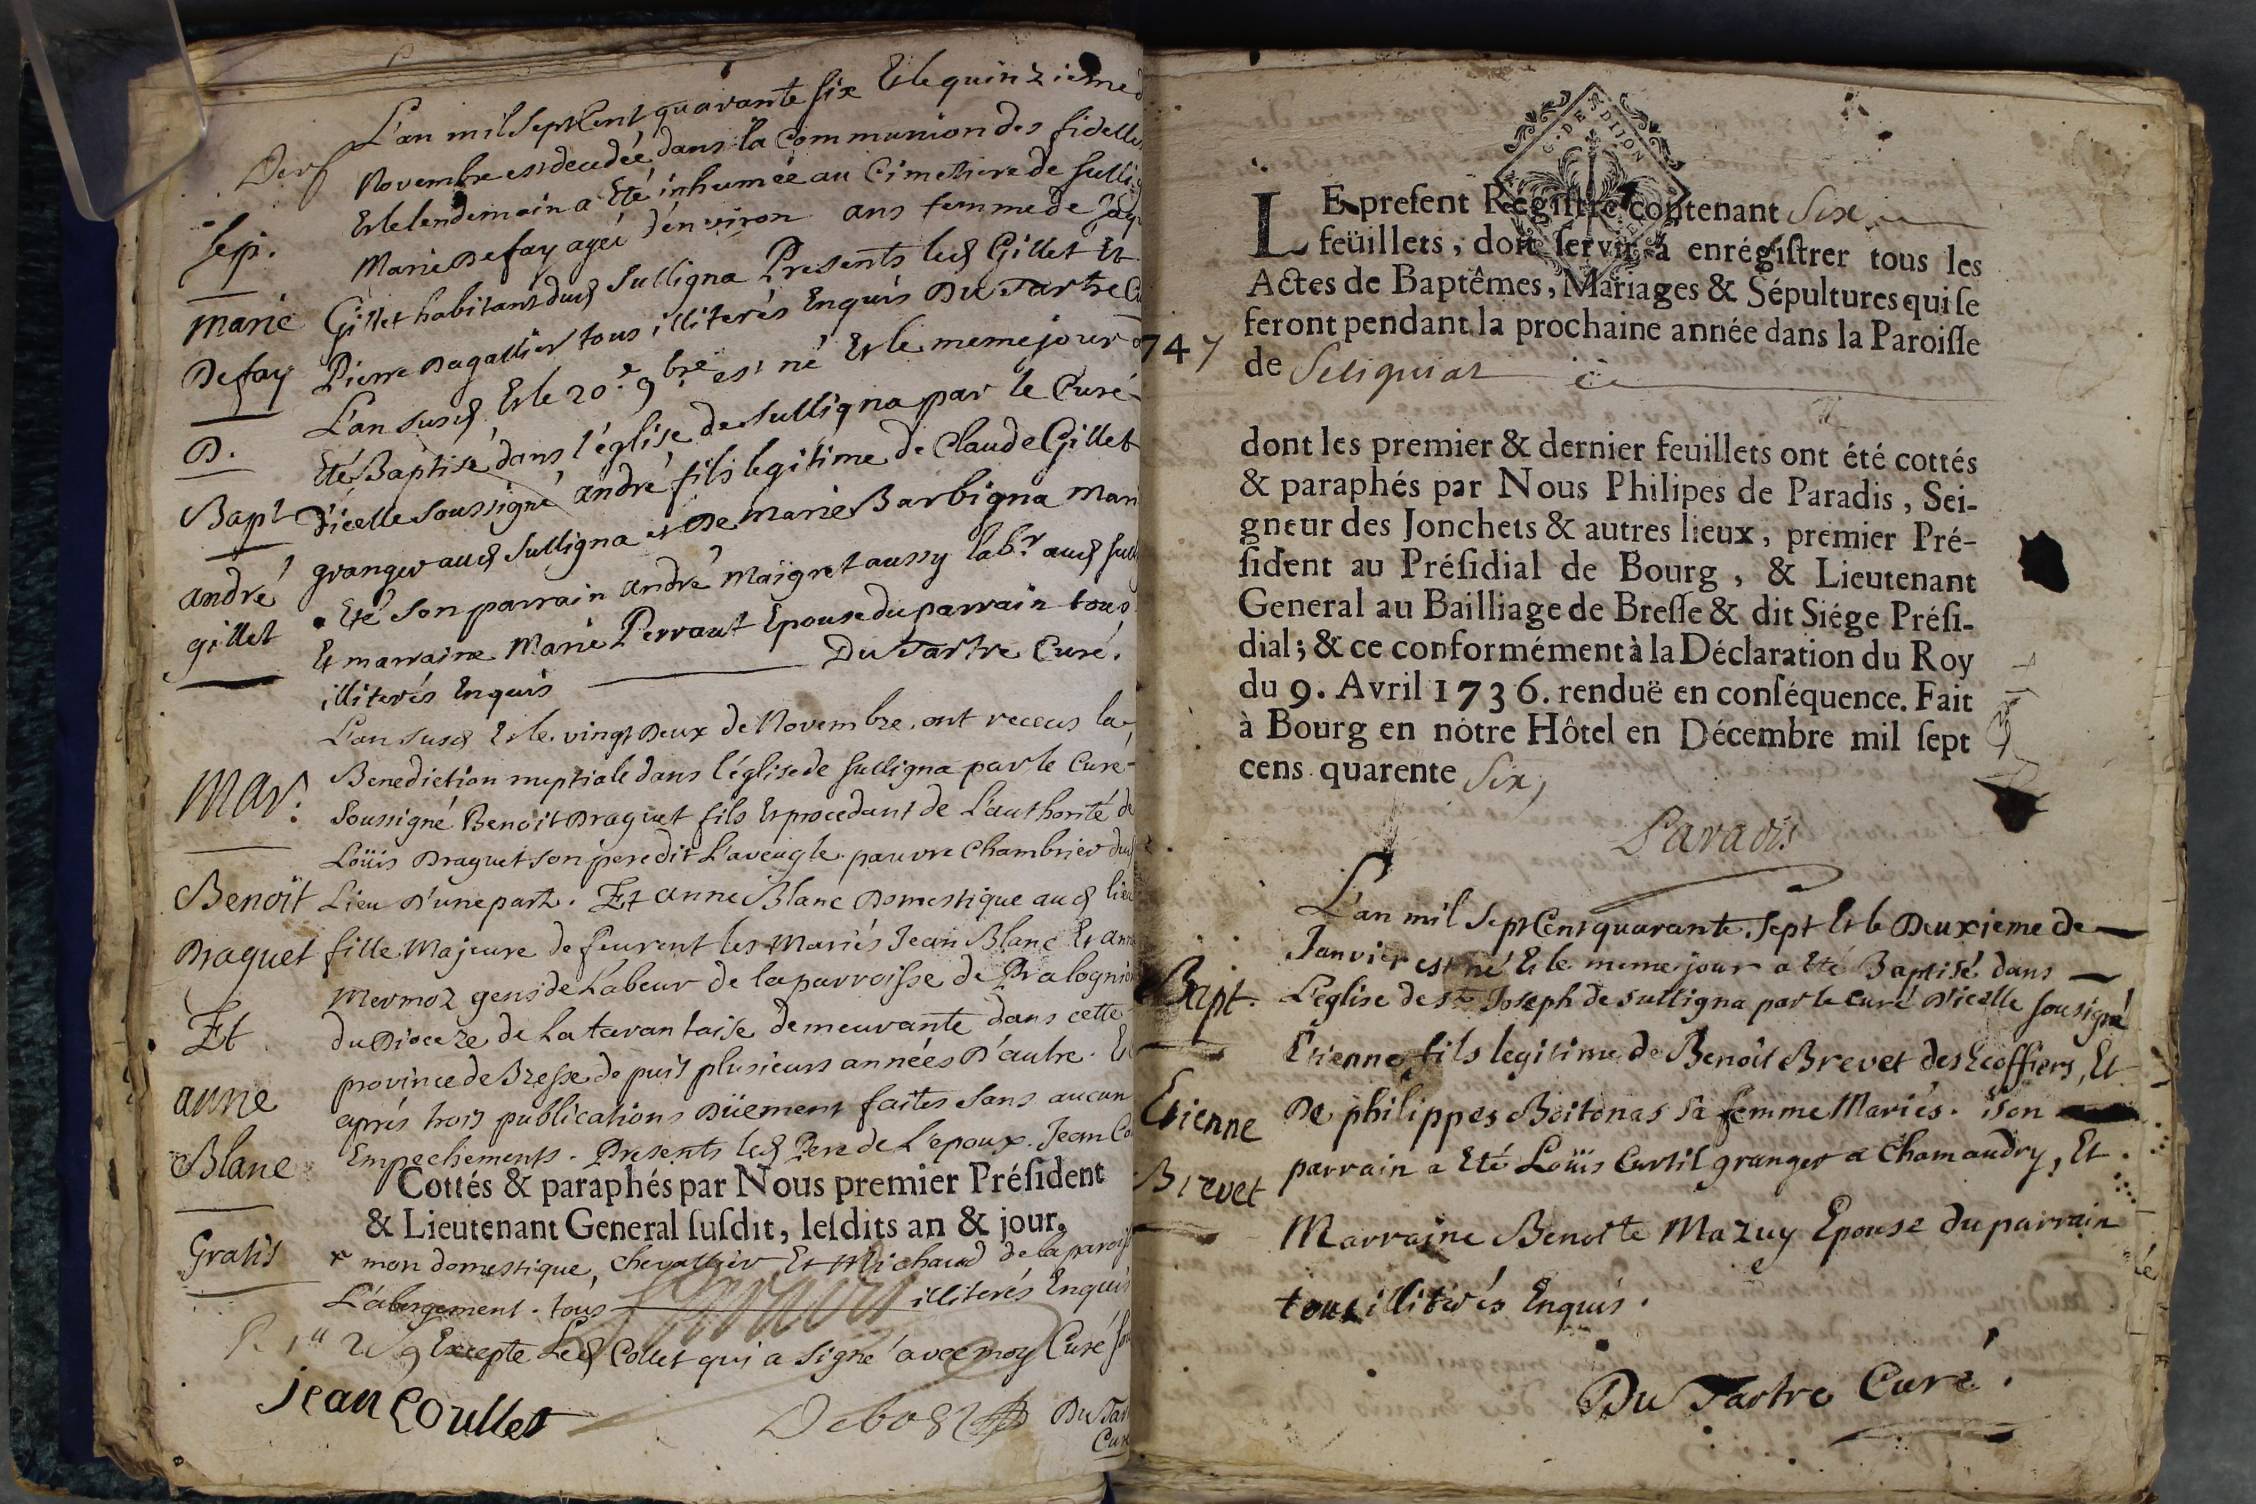 L'an mil sept Cent quarante six Et le quinzieme
Novembre est decedée dans la Communion des fidelle
Et le lendemain a Eté inhumée au Cimetiere de sullig
Marie Defay agée d'environ ans femme de Jaq
Gillet habitant dud sulligna Presents led Gillet Et
Pierre Dagallier tous illiterés Enquis Du Tartre C
sep.
Marie
Defay
D.
L'an susd Et le 20e 9bre est né Et le meme jour a
Eté Baptisé dans l'église de sulligna par le Curé
D'icelle soussigné andré fils legitime de Claude Gillet
granger aud sulligna et De Marie Barbigna Mari
Eté son parrain andré Maigret aussy labr aud sull
Et marraine Marie Perraut Epouse du parrain tous
illiterés Enquis Du Tartre Curé.
Bapt
andré
gillet
L'an susd Et le vingt Deux de Novembre ont receus la
Benediction nuptiale dans l'église de sulligna par le Curé
soussigné Benoit Draguet fils Et procedant de L'authorité de
Loüis Draguet son pere dit L'aveugle pauvre Chambrier dud
Lieu D'une part. Et anne Blanc Domestique aud lieu
fille Majeure de feurent les Mariés Jean Blanc Et ann
Mermoz gens de Labeur de la parroisse de Pralognion
du Dioceze de La tarantaise demeurante dans cette
province de Bresse depuis plusieurs années D'autre. Et
aprés trois publications Düement faites sans aucun
Empechements. Presents led Pere de L'epoux. Jean Co
Mar.
Benoit
Draguet
Et
anne
Blanc
Gratis
Cottés & paraphés par Nous premier Président
& Lieutenant General ſuſdit, leſdits an & jour.
mon domestique, chevallier Et Michaud de la paroiss
L'abergement. tous illiterés Enquis
Excepte Led Collet qui a signé avec moy Curé sou
jean Coullet
Du Tar
Cur
747
LE preſent Regiſtre contenant Six
feüillets, doit ſervir à enrégiſtrer tous les
Actes de Baptêmes, Mariages & Sépultures qui ſe
feront pendant la prochaine année dans la Paroiſſe
de Seligniat
dont les premier & dernier feuillets ont été cottés
& paraphés par Nous Philipes de Paradis, Sei-
gneur des Jonchets & autres lieux, premier Pré-
ſident au Préſidial de Bourg, & Lieutenant
General au Bailliage de Breſſe & dit Siége Préſi-
dial; & ce conformément à la Déclaration du Roy
du 9. Avril 1736. renduë en conſéquence. Fait
à Bourg en nôtre Hôtel en Décembre mil ſept
cens quarente Six,
Paradis
L'an mil sept Cent quarante sept Et le Deuxieme de
Janvier est né Et le meme jour a Eté Baptisé dans
L'eglise de st Joseph de sulligna par le curé D'icelle sousigné
Etienne fils legitime de Benoit Brevet des Ecoffiers, Et
De philippes Boitonas sa femme Mariés. son
parrain a Eté Loüis Curtil granger a Chamaudry, Et
Marraine Benoite Mazuy Epouse du parrain
tous illiterés Enquis.
Du Tartre Curé.
Bapt.
Etienne
Brevet